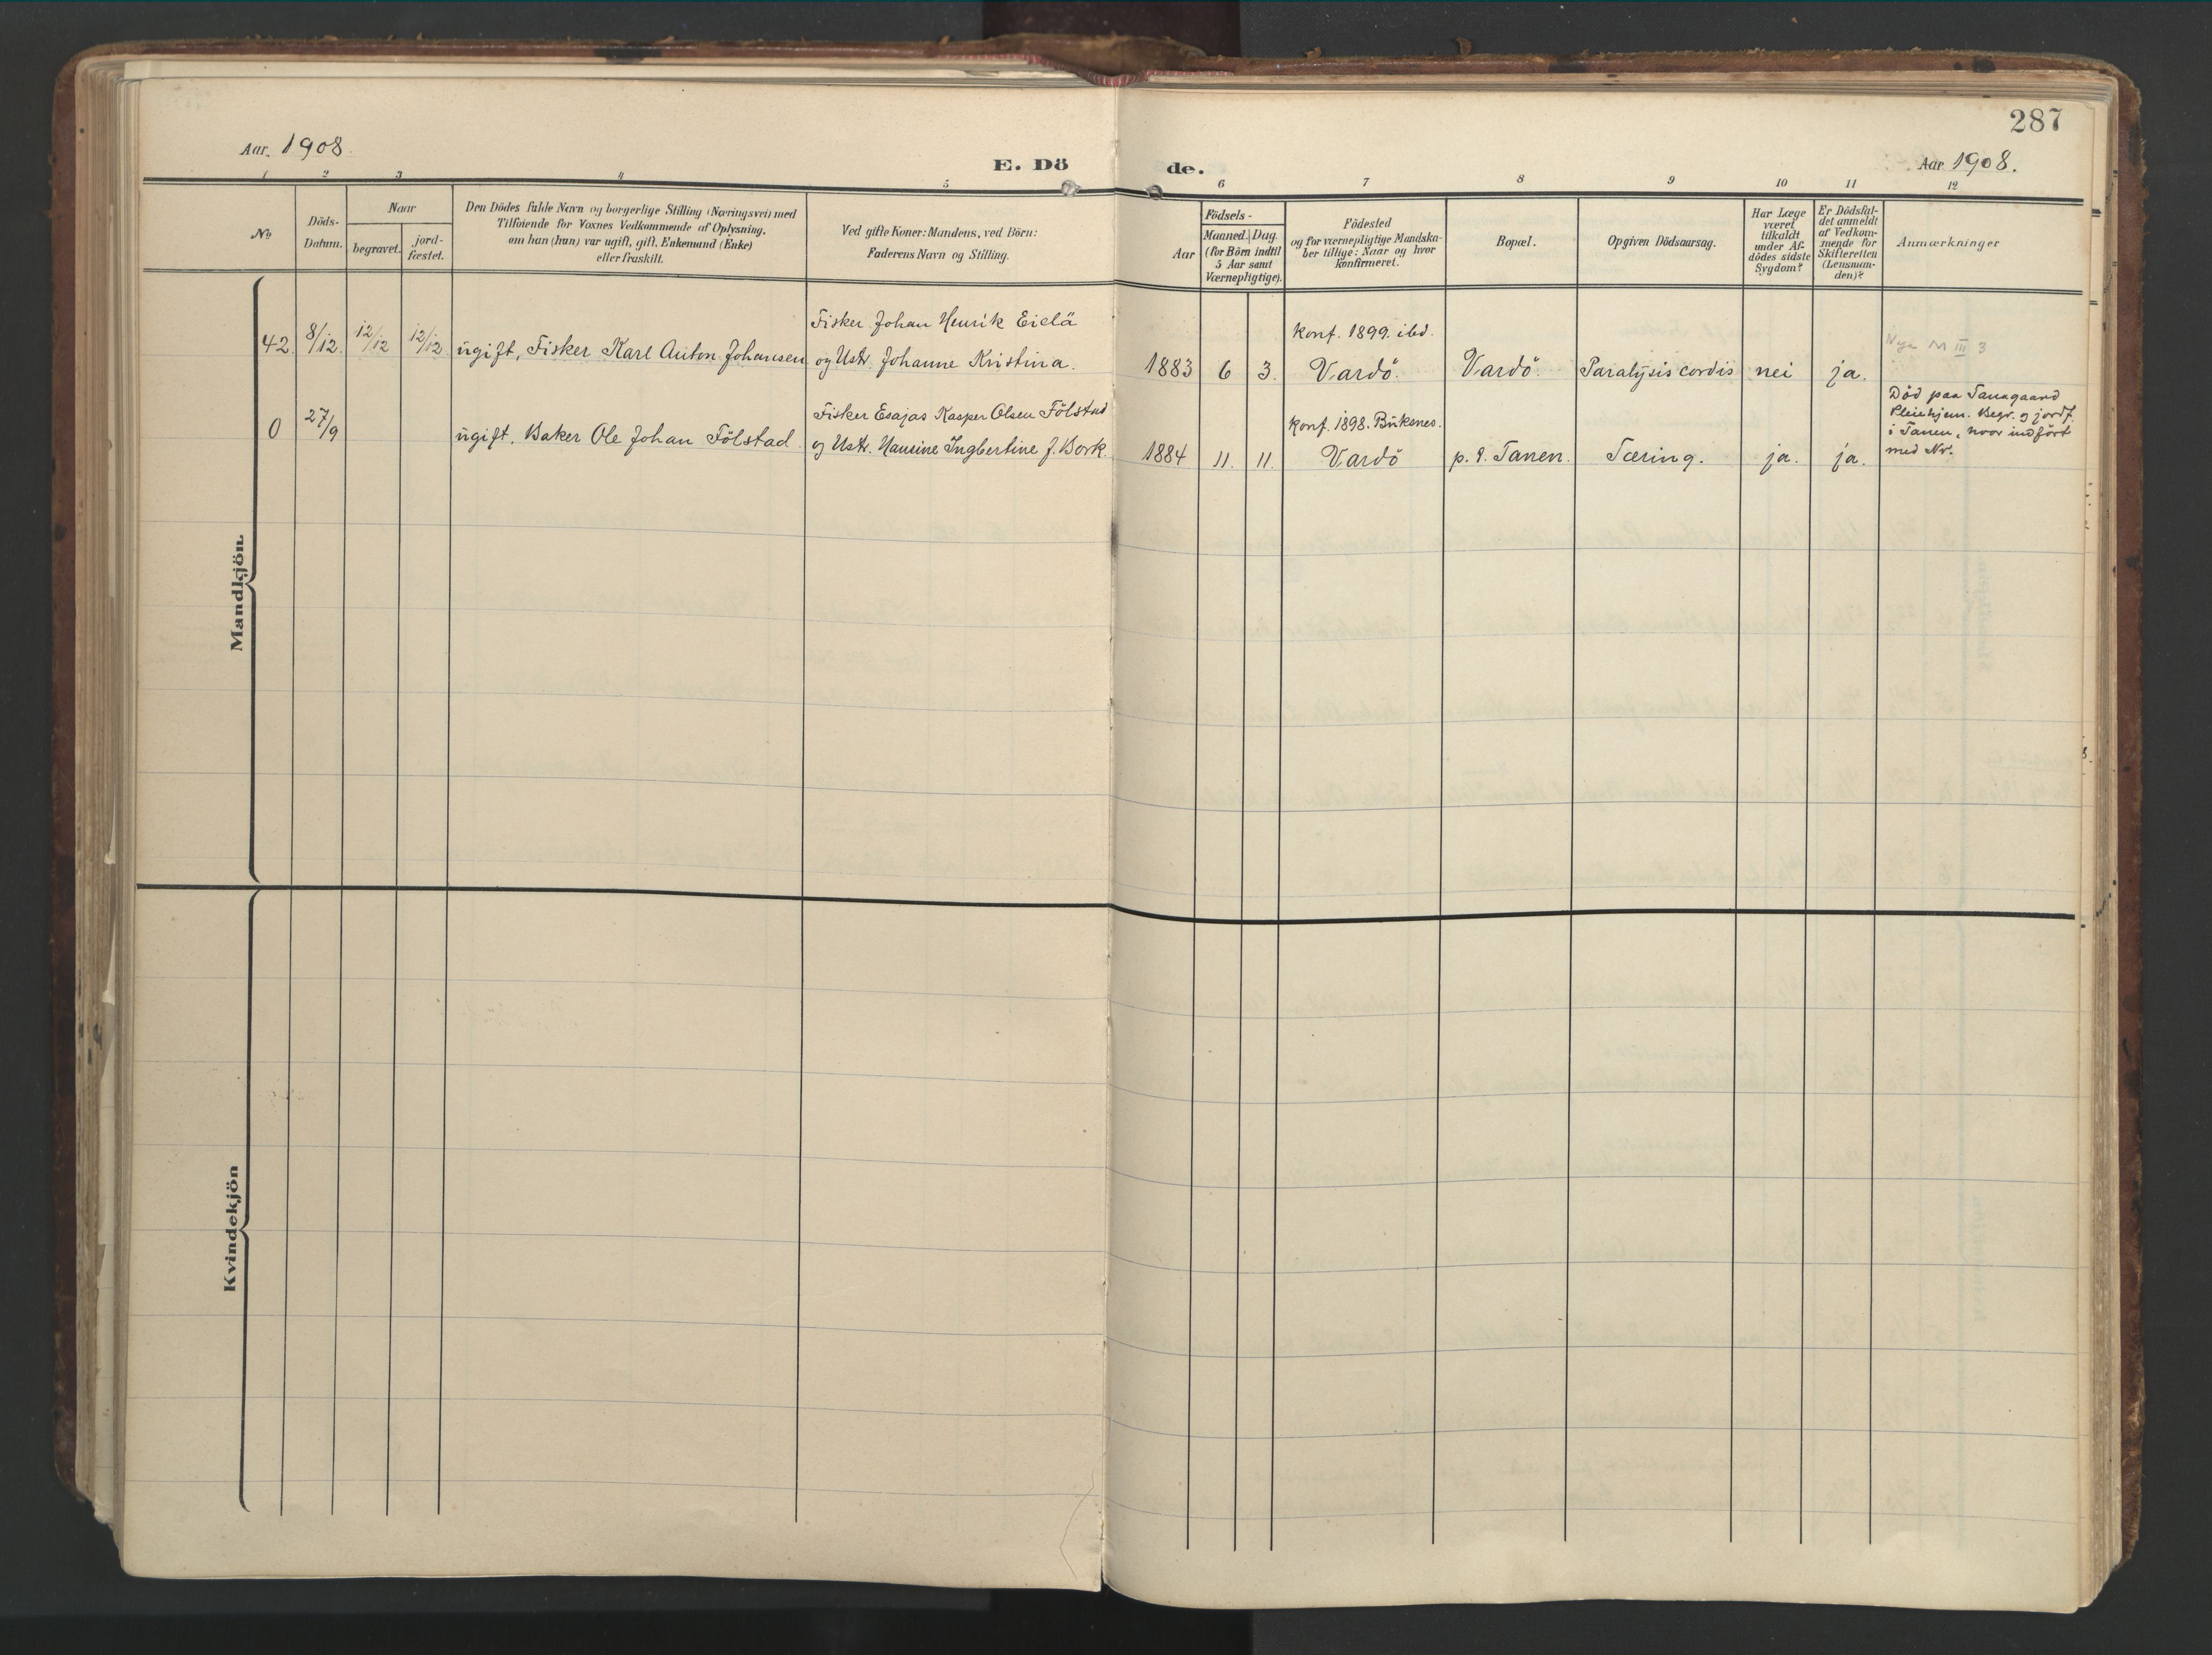 287
Aar. 1908.
E. Dö de.
Aar 1908.
1 2 3 4 5 6 7 8 9 10 11 12
No
Döds-
Datum.
Naar
begravet.
jord-
fæstet.
Den Dödes fulde Navn og borgerlige Stilling (Næringsvei) med
Tilföiende for Voxnes Vedkommende af Oplysning,
om han (hun) var ugift, gift, Enkemand (Enke)
eller fraskilt.
Ved gifte Koner: Mandens, ved Börn:
Faderens Navn og Stilling.
Födsels-
Aar
Maaned. Dag.
(for Börn indtil
5 Aar samt
Værnepligtige).
Födested
og for værnepligtige Mandska-
ber tillige: Naar og hvor
konfirmeret.
Bopæl.
Opgiven Dödsaarsag.
Har Læge
været
tilkaldt
under Af-
dödes sidste
Sygdom?
Er Dödsfal-
det anmeldt
af Vedkom-
mende for
Skifteretten
(Lensman-
den)?
Anmærkninger
Mandkjön.
Fisker Johan Henrik Eielä
konf. 1899. ibd.
42. 8/12. 12/12 12/12 ugift, Fisker Karl Anton Johansen og Ustr. Johanne Kristina. 1883 6 3. Vardö. Vardö. Paralysis cordis nei ja.
M III 3
Fisker Esajas Kasper Olsen Fölstad
konf. 1898. Buksnes.
0 27/9 ugift, Baker Ole Johan Fölstad. og Ustr. Hansine Ingbertine f. Bork. 1884 11. 11. Vardö p. t. Tanen. Tæring. ja. ja.
Död paa Tanagaard
Pleiehjem. Begr. og jordf.
i Tanen, hvor indfört
med Nr.
Kvindekjön